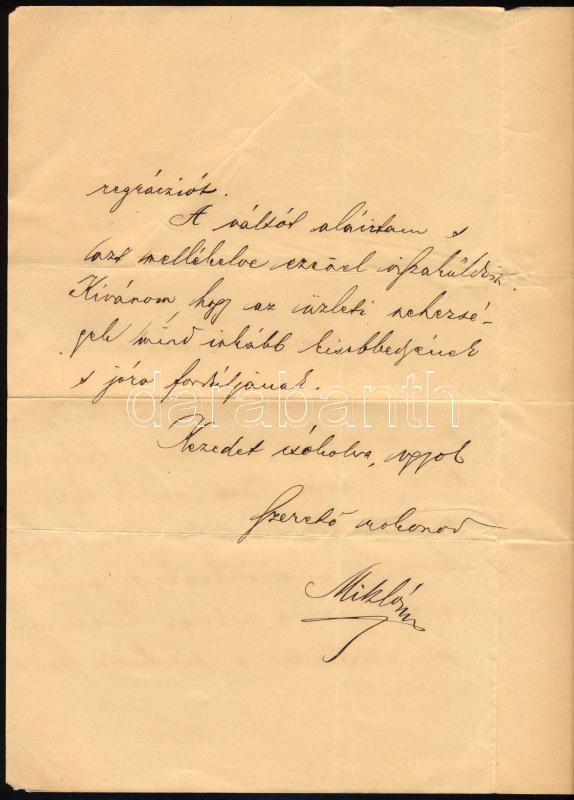 regráciiót.
A váltót aláirtam s
azt mellékelve ezennel visszaküldöm.
Kivánom hogy az üzleti nehézsé-
gek mind inkább kisebbedjenek
s jóra forduljanak.
darabanth
Kezedet csókolva, vagyok
Szerető rokonod
Miklós